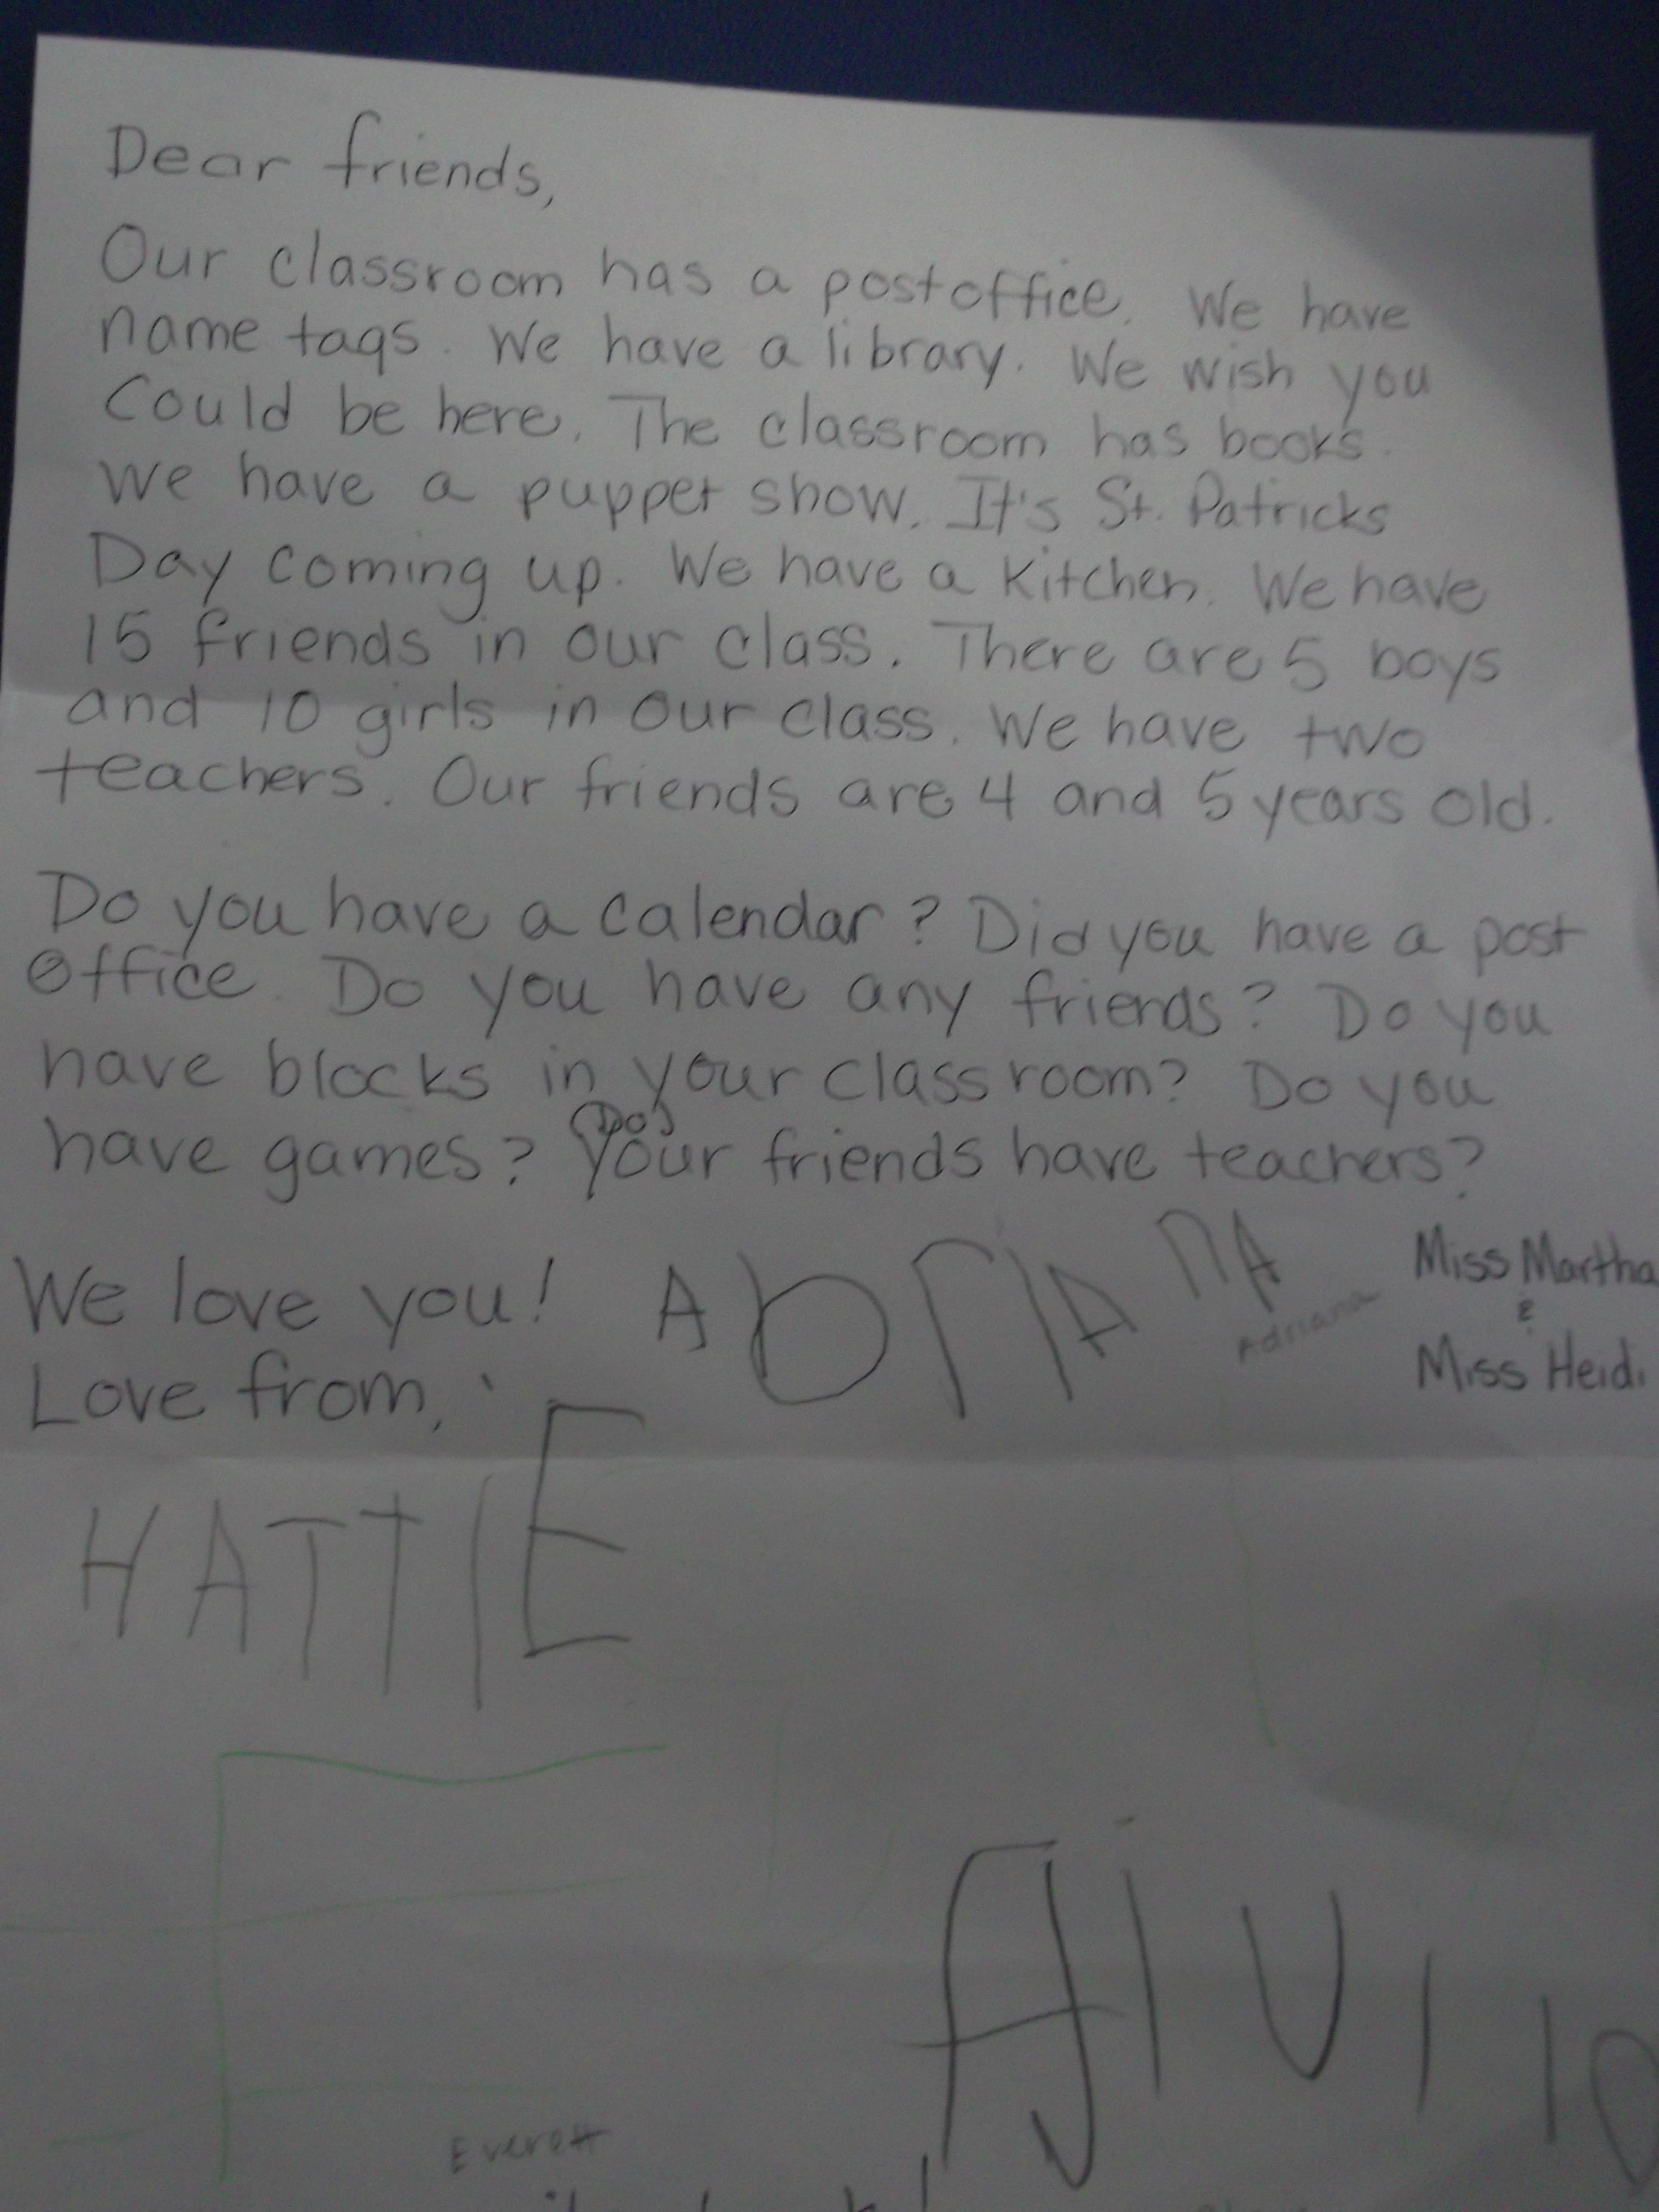 Dear friends,
Our classroom has a postoffice. We have
name tags. We have a library. We wish you
Could be here. The classroom has books.
We have a puppet show. It's St. Patricks
Day coming up. We have a Kitchen. We have
15 friends in our class. There are 5 boys
and 10 girls in our class. We have two
teachers. Our friends are 4 and 5 years old.
Do you have a calendar? Did you have a post
office. Do you have any friends? Do you
have blocks in your classroom? Do you
have games? (Do) Your friends have teachers?
We love you! ADriANA Adriana Miss Martha
& Miss Heidi
Love from,
HATTIE
E
Everett